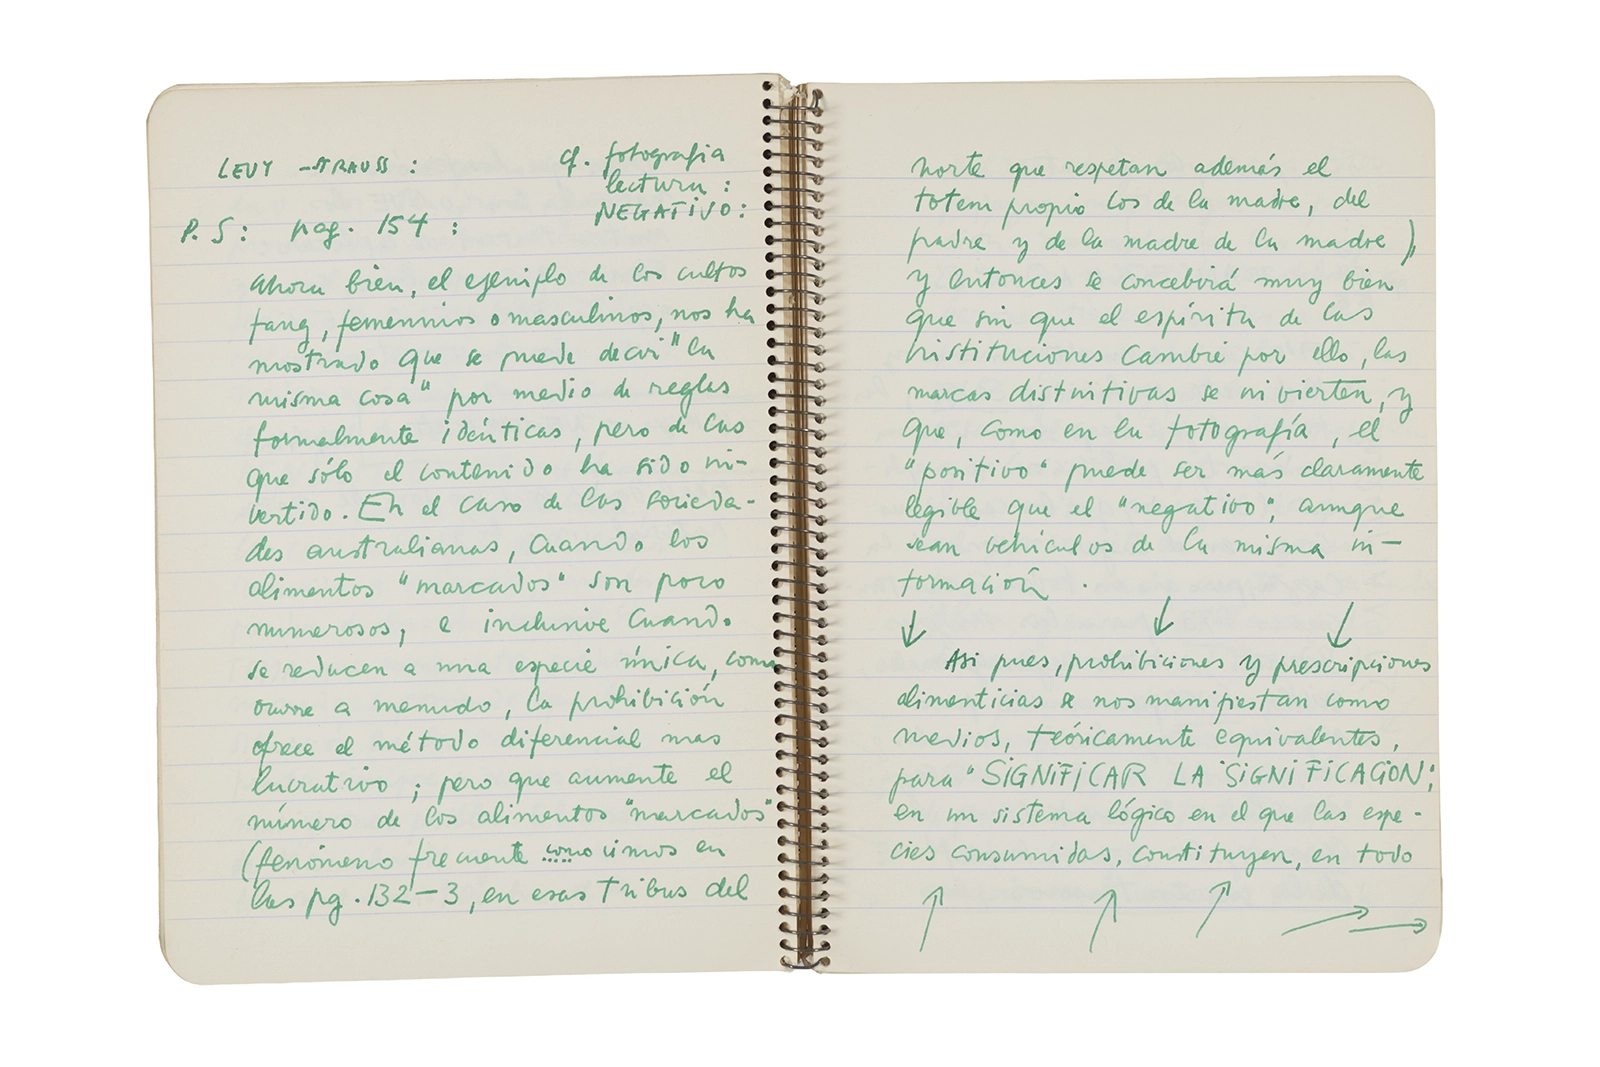 LEVY -STRAUSS :
cf. fotografía
lectura :
NEGATIVO :
P. S : pag. 154 :
Ahora bien, el ejemplo de los cultos
fang, femeninos o masculinos, nos ha
mostrado que se puede decir "la
misma cosa" por medio de reglas
formalmente idénticas, pero de las
que sólo el contenido ha sido in-
vertido. En el caso de las socieda-
des australianas, cuando los
alimentos "marcados" son poco
numerosos, e inclusive cuando
se reducen a una especie única, como
ocurre a menudo, la prohibición
ofrece el método diferencial mas
lucrativo ; pero que aumente el
número de los alimentos "marcados"
(fenómeno frecuente como vimos en
las pg. 132-3, en esas tribus del
norte que respetan además el
totem propio los de la madre, del
padre y de la madre de la madre)
y entonces se concebirá muy bien
que sin que el espíritu de las
instituciones cambie por ello, las
marcas distintivas se invierten, y
que, como en la fotografía, el
"positivo" puede ser más claramente
legible que el "negativo", aunque
sean vehículos de la misma in-
formación .
Asi pues, prohibiciones y prescripciones
alimenticias se nos manifiestan como
medios, teóricamente equivalentes,
para "SIGNIFICAR LA SIGNIFICACION",
en un sistema lógico en el que las espe-
cies consumidas, constituyen, en todo